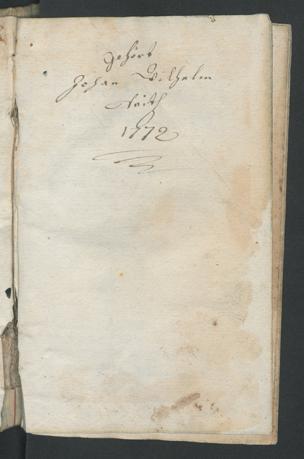 Gehört
Johan Wilhelm
1772